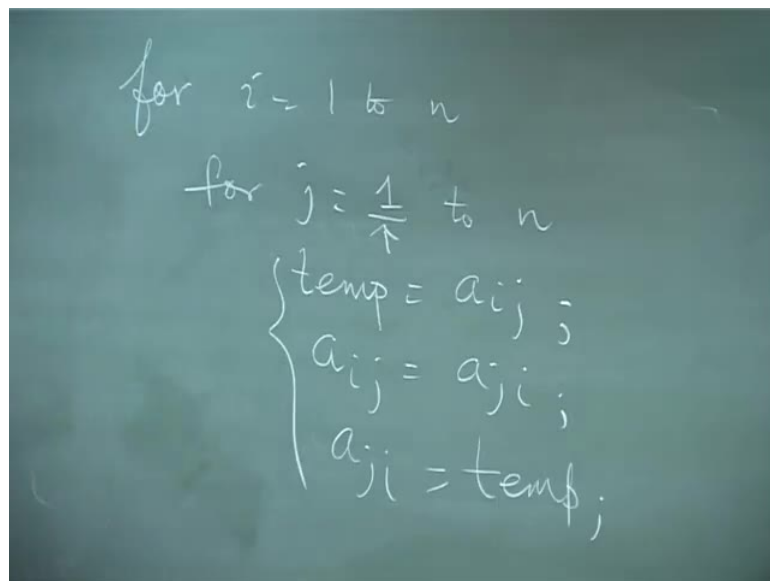 for i = 1 to n
for j = 1 to n
↑
{ temp = aij ;
aij = aji ;
aji = temp ;